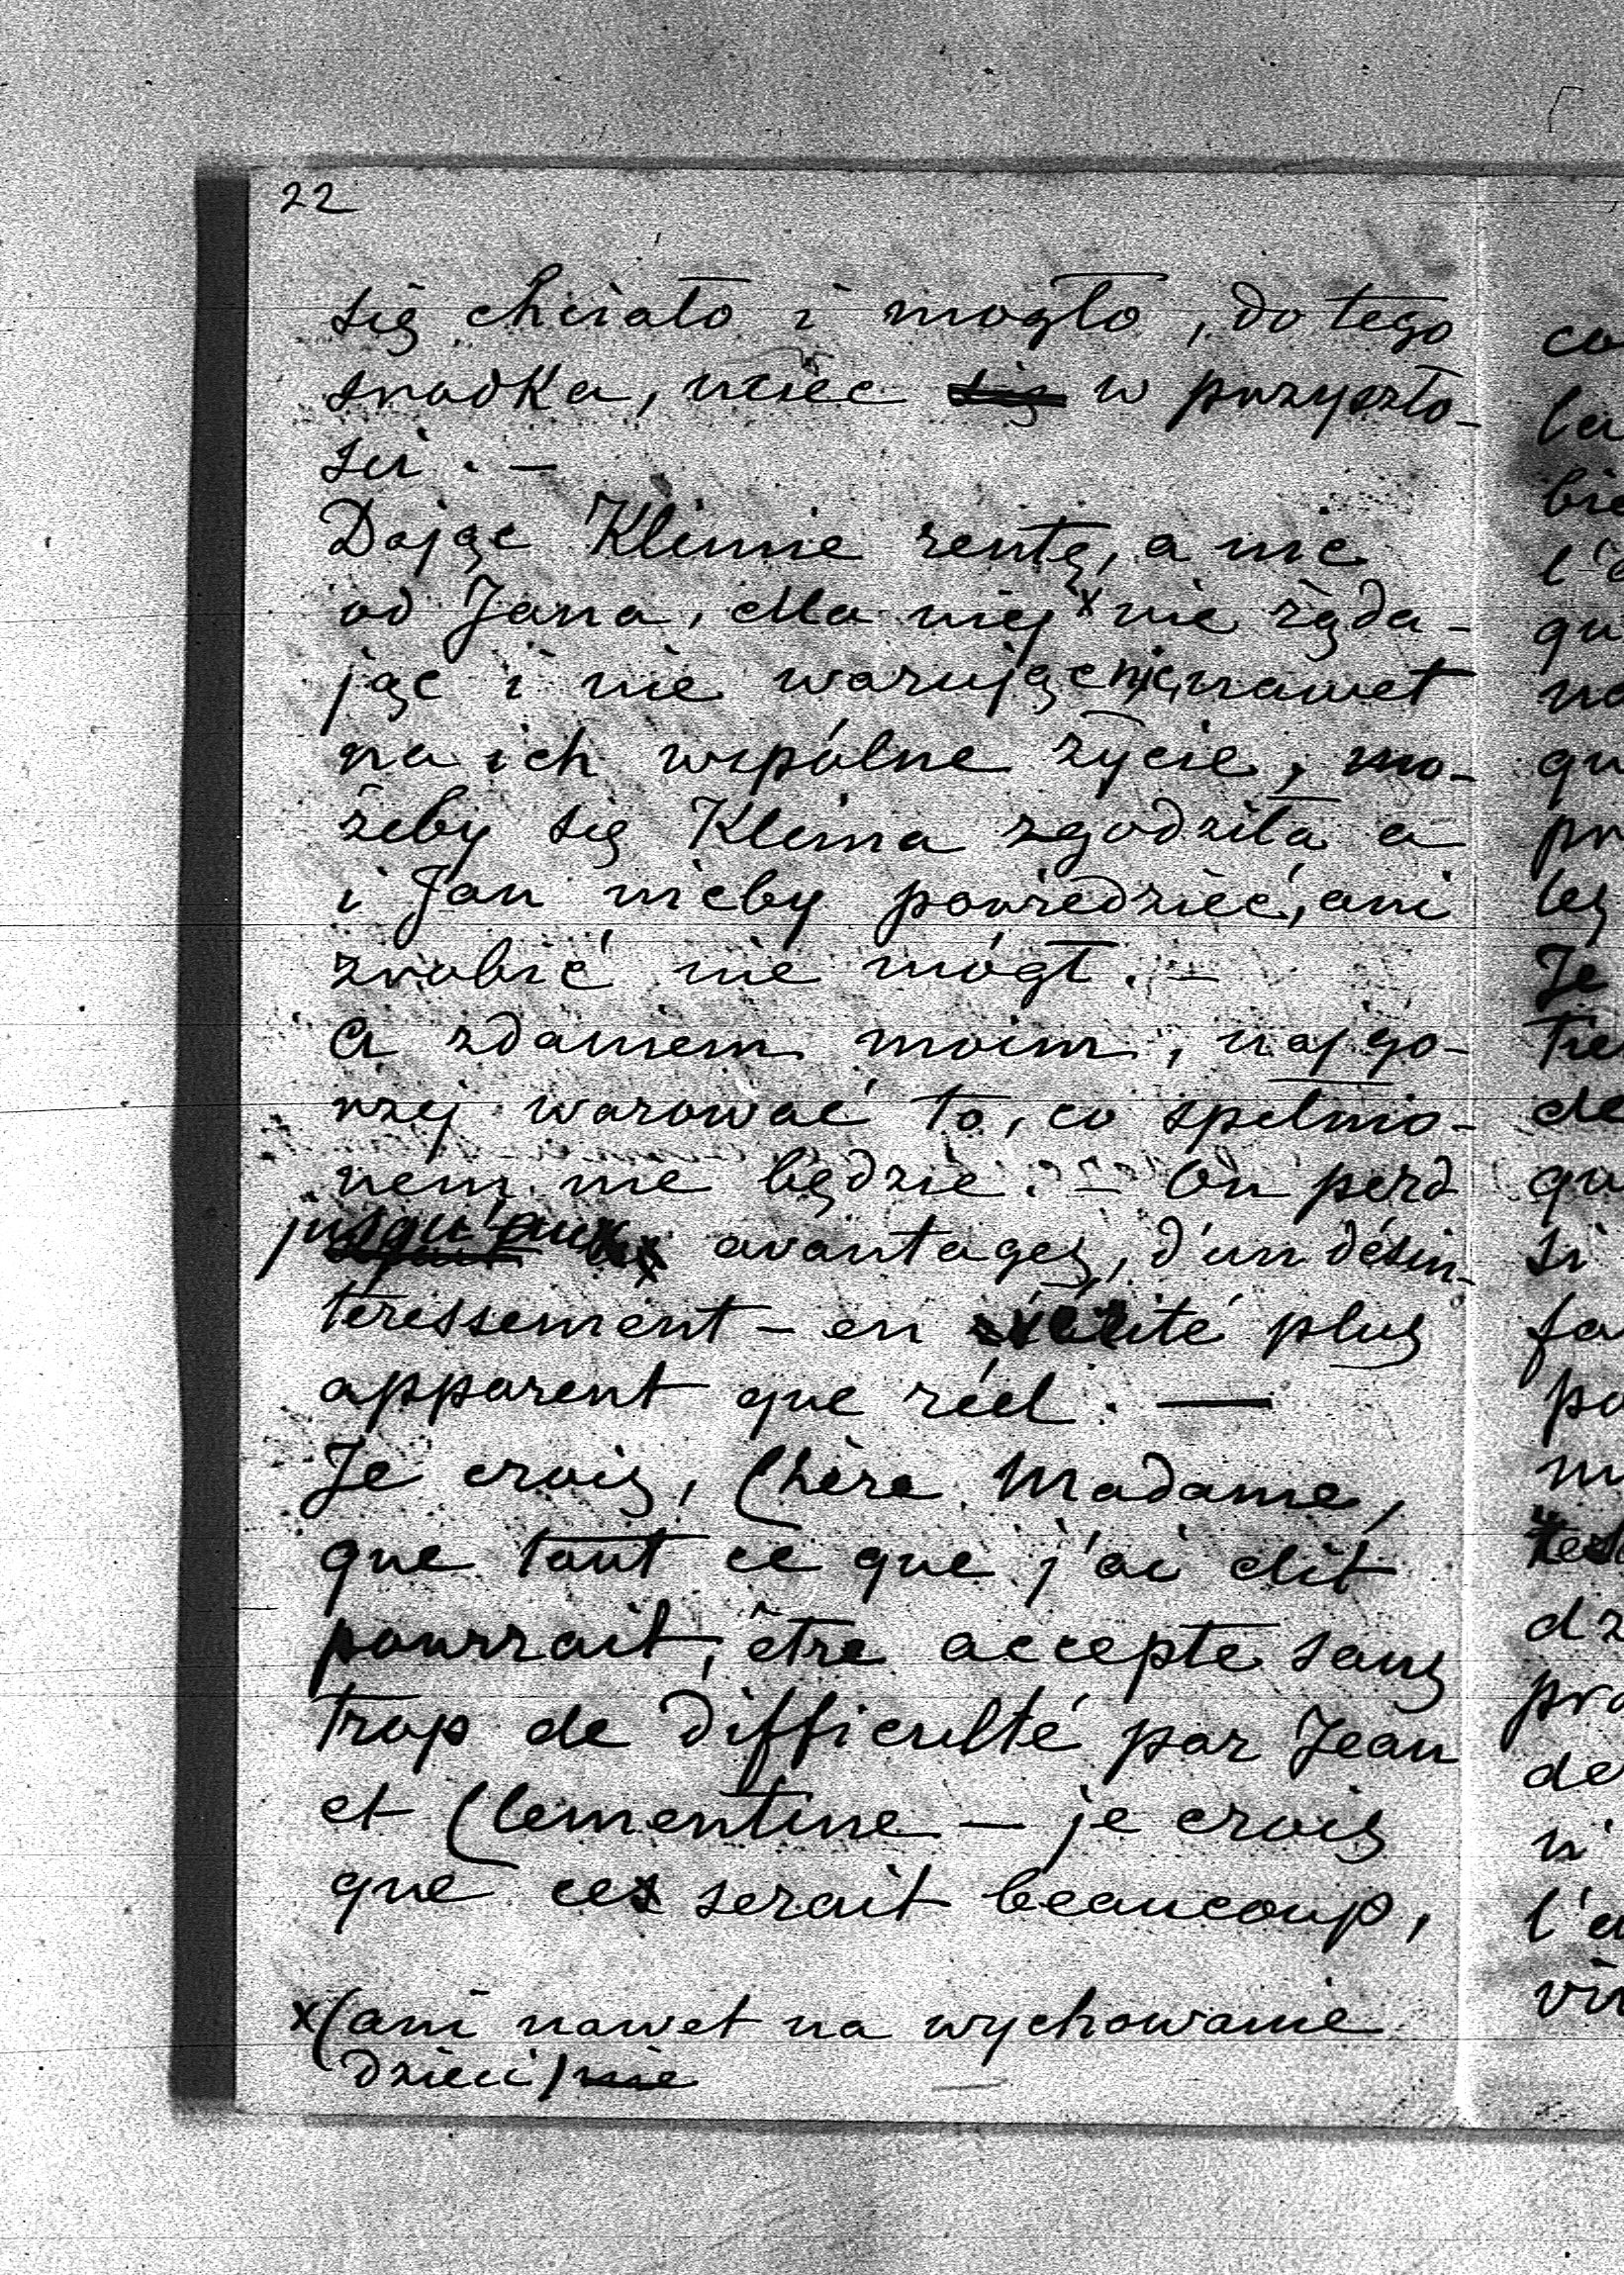 22
się chciało i mogło, do tego
środka, uciec się w przyszło-
ści. —
Dając Klimie rentę, a nic
od Jana, dla niej x nie żąda-
jąc i nie warując nic, nawet
na ich wspólne życie, mo-
żeby się Klima zgodziła a
i Jan nicby powiedzieć, ani
zrobić nie mógł. —
A zdaniem moim, najgo-
rzej warować to, co spełnio-
nem nie będzie. — On perd
jusqu'aux avantages, d'un désin-
téressement — en vérité plus
apparent que réel. —
Je crois, Chère Madame,
que tout ce que j'ai dit
pourrait, être accepté sans
trop de difficulté par Jean
et Clementine — je crois
que ce serait beaucoup,
x (ani nawet na wychowanie
dzieci) nie
co
la
bie
l'
qu
no
qu
pr
les
Je
tre
de
qu
si
fa
po
m
dz
pro
de
n'
l'a
vi